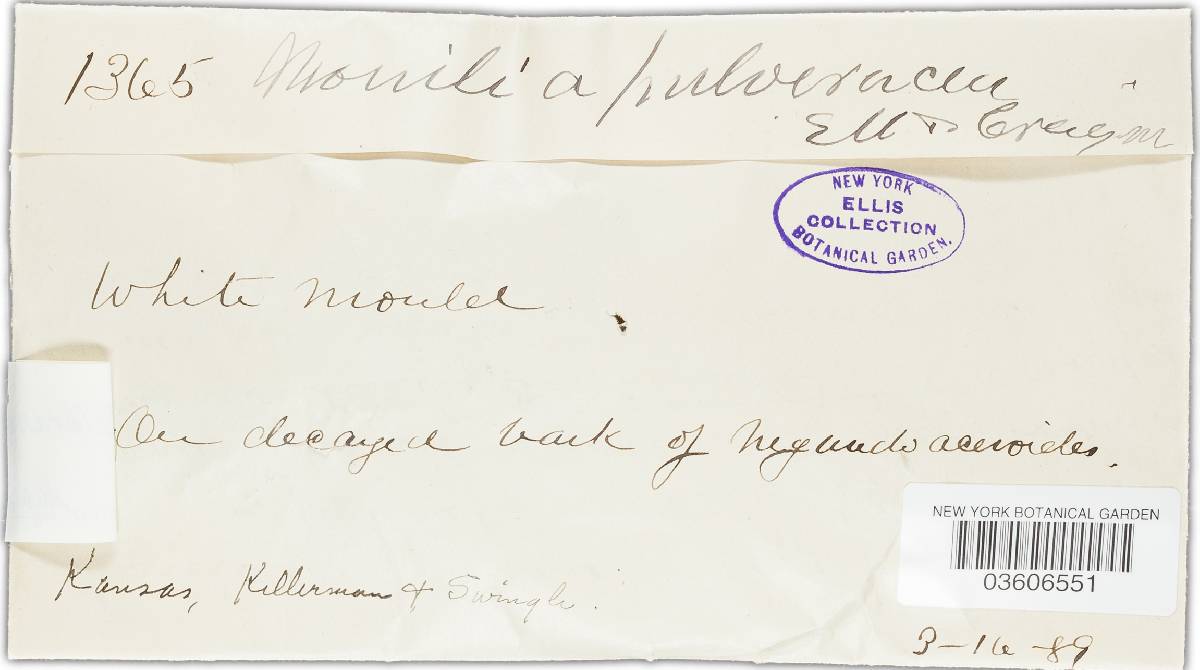 1365 Monilia pulveracea
Ell & Cragin
NEW YORK
ELLIS
COLLECTION
BOTANICAL GARDEN.
White mould
On decayed bark of Negundo aceroides.
NEW YORK BOTANICAL GARDEN
03606551
Kansas, Kellerman & Swingle.
3-16-89